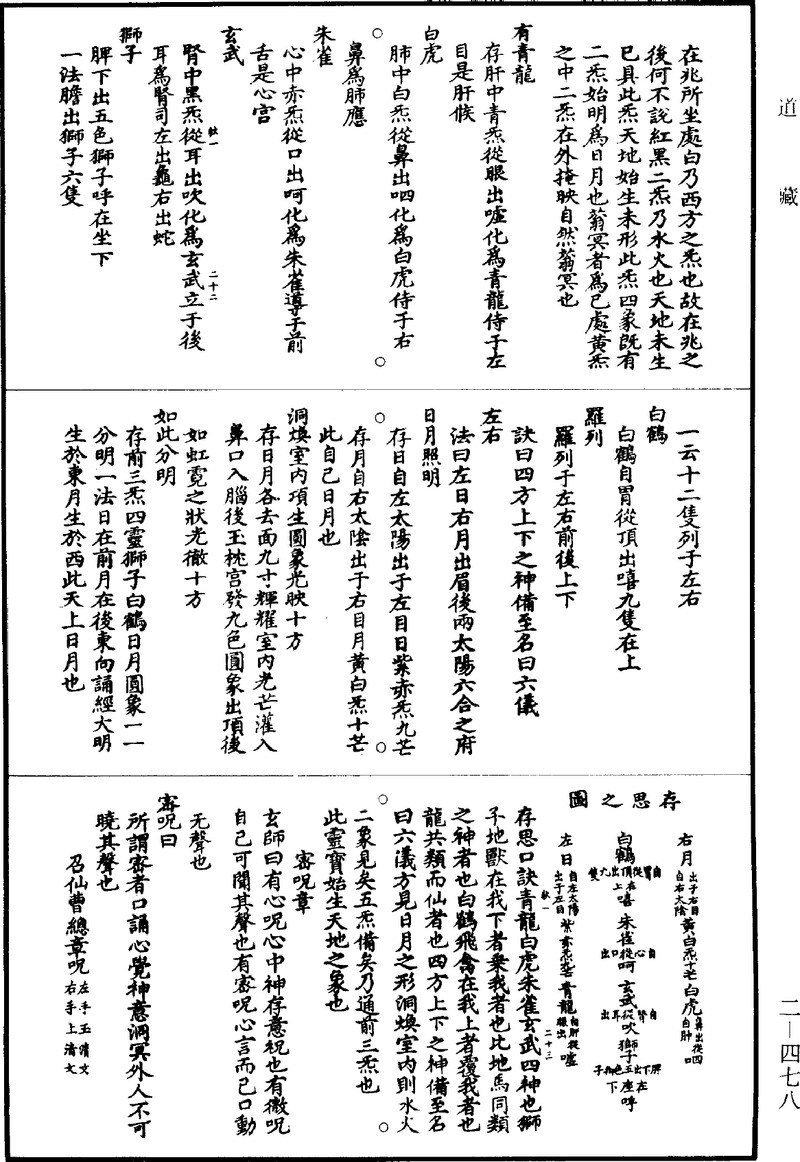 道藏
在兆所坐處白乃西方之炁也故在兆之
後何不說紅黑二炁乃水火也天地未生
已具此炁天地始生未形此炁四象既有
二炁始明為日月也蓊冥者為已處黃炁
之中二炁在外掩映自然蓊冥也
有青龍
存肝中青炁從眼出噓化為青龍侍于左
目是肝候
白虎
肺中白炁從鼻出呬化為白虎侍于右
鼻為肺應
朱雀
心中赤炁從口出呵化為朱雀導于前
舌是心宮
玄武
腎中黑炁從耳出吹化為玄武立于後
二十二
耳為腎司左出龜右出蛇
獅子
脾下出五色獅子呼在坐下
一法膽出獅子六隻
一云十二隻列于左右
白鶴
白鶴自胃從頂出嘻九隻在上
羅列
羅列于左右前後上下
訣曰四方上下之神備至名曰六儀
左右
法曰左日右月出眉後兩太陽六合之府
日月照明
存日自左太陽出于左目日紫赤炁九芒
存月自右太陰出于右目月黃白炁十芒
此自己日月也
洞煥室內項生圓象光映十方
存日月各去面九寸輝耀室內光芒灌入
鼻口入腦後玉枕宮發九色圓象出頂後
如虹霓之狀光徹十方
如此分明
存前三炁四靈獅子白鶴日月圓象一一
分明一法日在前月在後東向誦經大明
生於東月生於西此天上日月也
存思之圖
右月出于右目自右太陰黃白炁十芒白虎
白鶴自胃從頂出九隻在上嘻朱雀自心從口出呵玄武自腎從耳出吹獅子脾下出五色獅子在座下呼
左日自左太陽出于左目紫赤炁九芒青龍自肝從眼出噓
二十三
存思口訣青龍白虎朱雀玄武四神也獅
子地獸在我下者乗我者也比地馬同類
之神者也白鶴飛禽在我上者覆我者也
龍共類而仙者也四方上下之神備至名
曰六儀方見日月之形洞煥室內則水火
二象見矣五炁備矣乃通前三炁也
此靈寶始生天地之象也
密呪章
玄師曰有心呪心中神存意祝也有微呪
自己可聞其聲也有密呪心言而已口動
无聲也
密呪曰
所謂密者口誦心覺神意洞冥外人不可
曉其聲也
召仙曹總章呪左手玉清文右手上清文
二—四七八